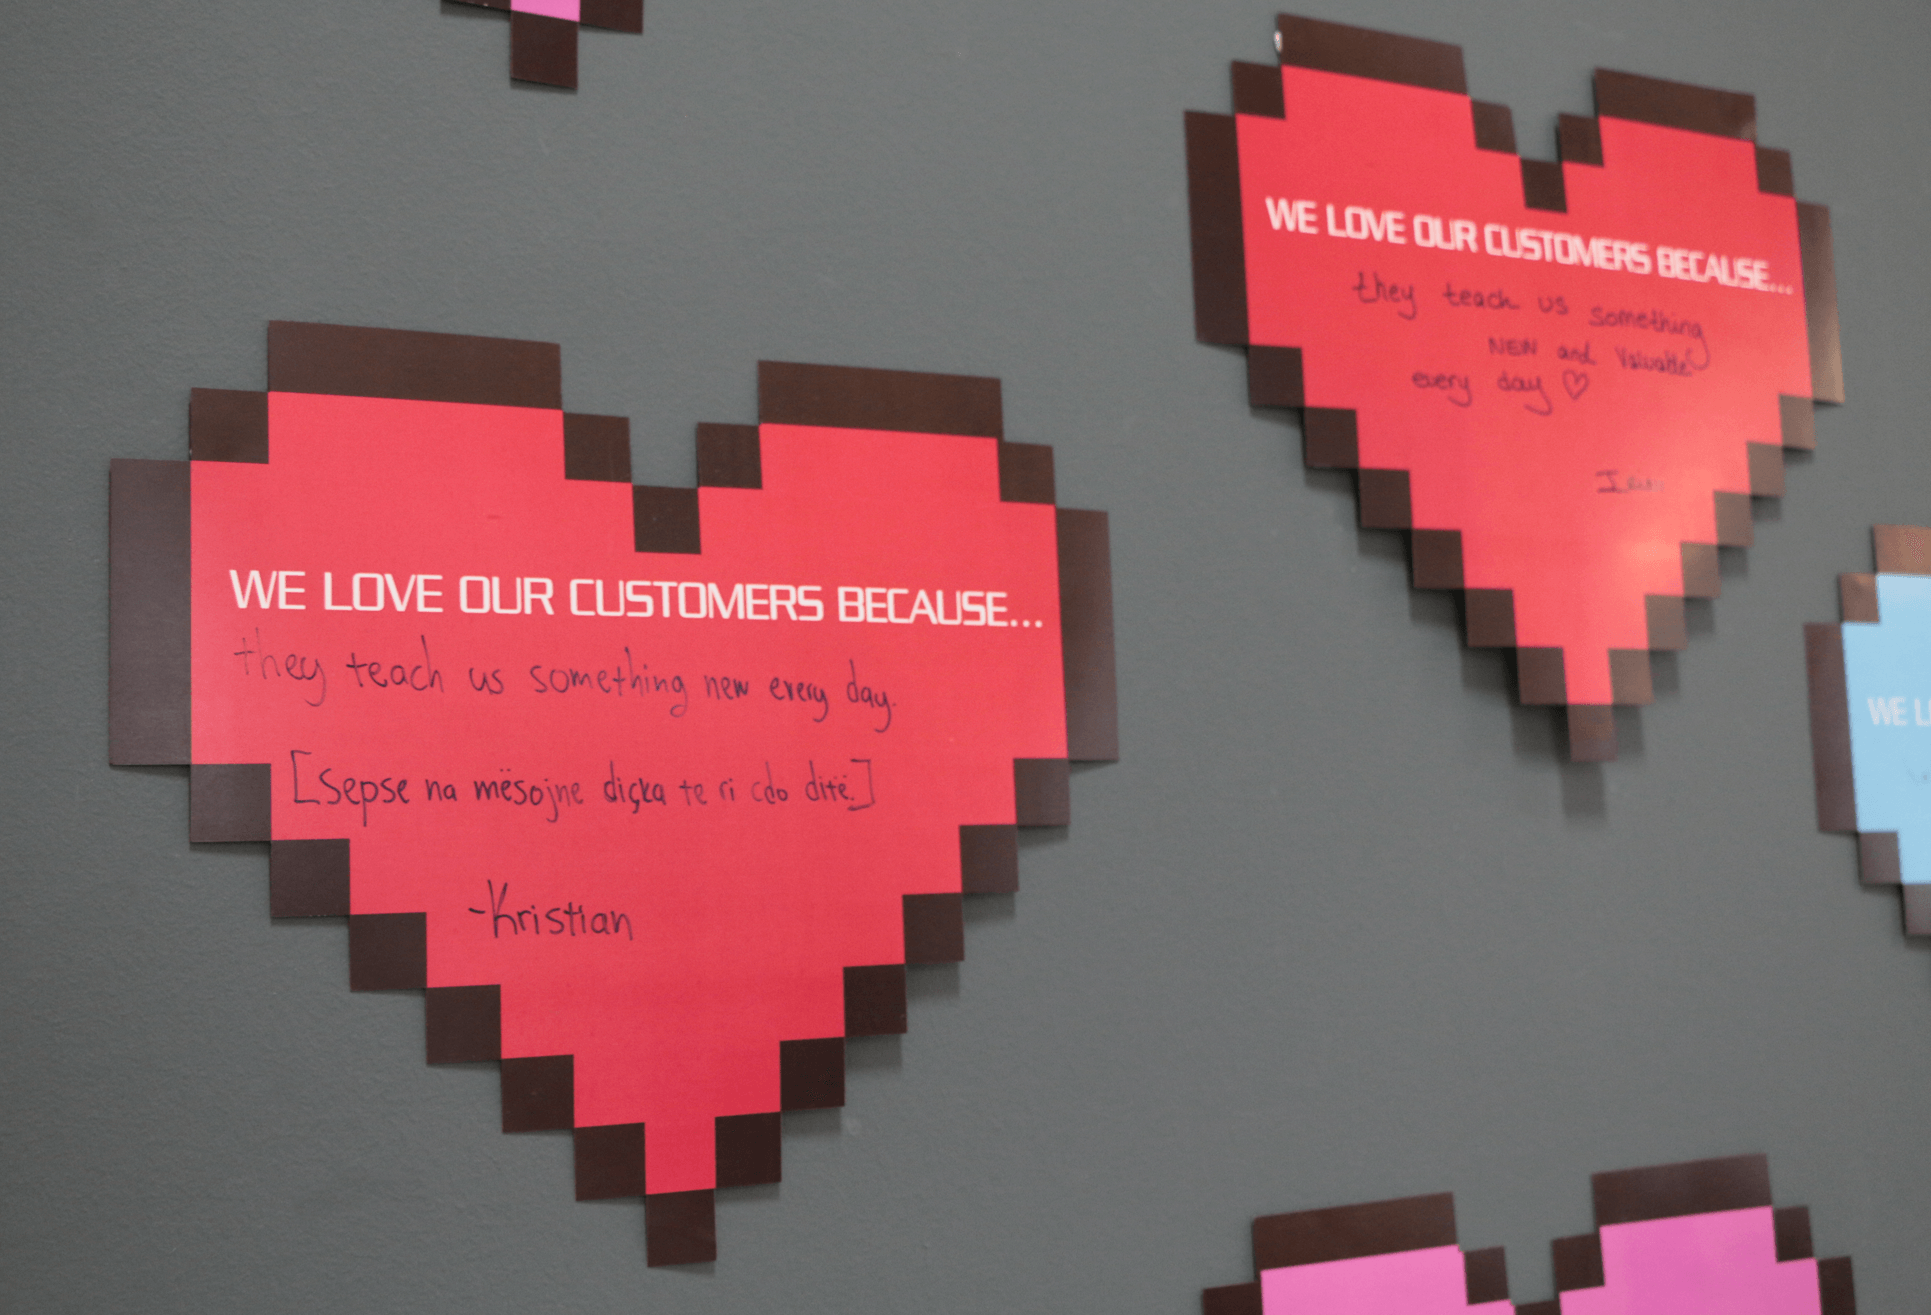 WE LOVE OUR CUSTOMERS BECAUSE...
they teach us something new every day.
[sepse na mësojne diçka te ri cdo ditë.]
-Kristian
WE LOVE OUR CUSTOMERS BECAUSE...
they teach us something
NEW and Valuable
every day ♡
WE L